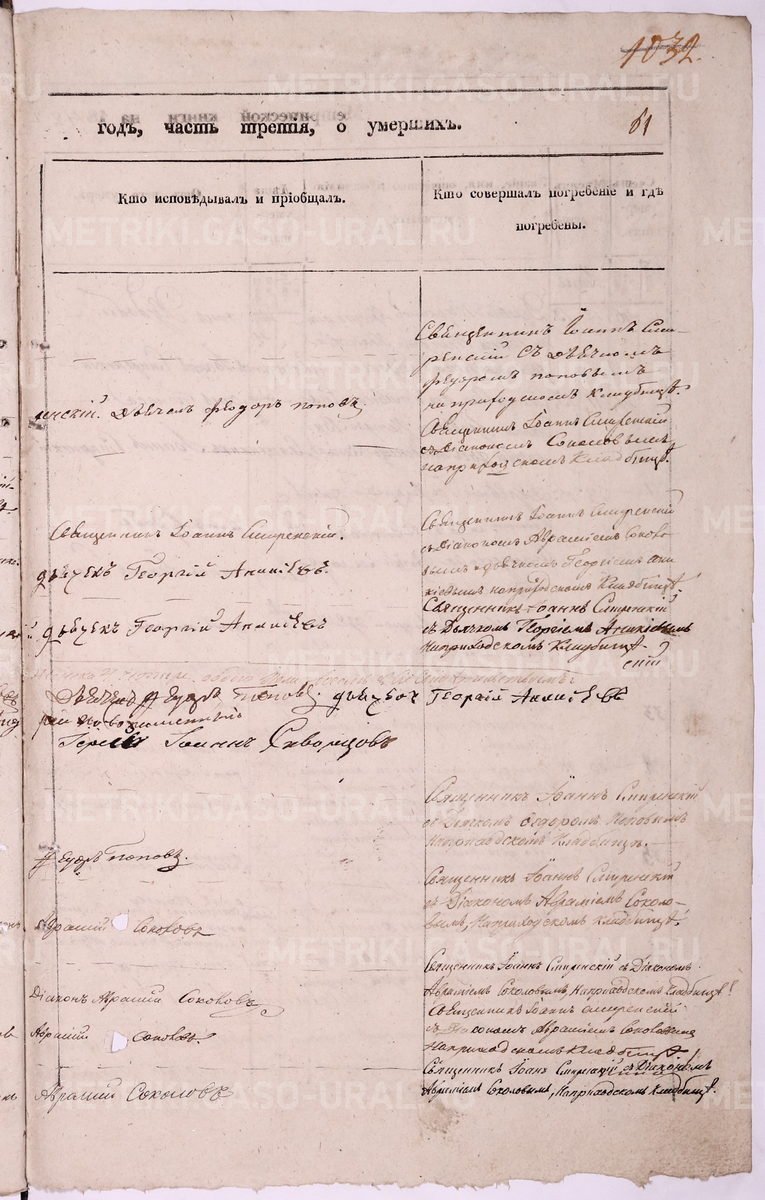 1032.
годъ, часть третія, о умершихъ.
61
Кто исповѣдывалъ и пріобщалъ.
Кто совершалъ погребеніе и гдѣ
погребены.
Священникъ Іоаннъ Сми-
ренскій съ дьячкомъ
Федоромъ Поповымъ
на приходскомъ кладбищѣ.
нскій. Дьячекъ Феодоръ Поповъ
Священникъ Іоаннъ Смиренскій
съ Діакономъ Соколовымъ
на приходскомъ кладбищѣ.
Священникъ Іоаннъ Смиренскій.
дьячекъ Георгій Аникіевъ.
Священникъ Іоаннъ Смиренскій
съ Діакономъ Абраміемъ Соколо-
вымъ и дьячкомъ Георгіемъ Ани-
кіевымъ на приходскомъ кладбищѣ.
дьячекъ Георгій Аникіевъ
Священникъ Іоаннъ Смиренскій
съ Дьячкомъ Георгіемъ Аникіевымъ
На приходскомъ кладбищѣ.
скій
Дьячекъ Федоръ Поповъ. дьячокъ Георгій Аникіевъ
Іерей Іоаннъ Скворцовъ
Священникъ Іоаннъ Смиренскій
съ Дьячкомъ Федоромъ Поповымъ
На приходскомъ кладбищѣ.
Федоръ Поповъ.
Священникъ Іоаннъ Смиренскій
съ Діакономъ Абраміемъ Соколо-
вымъ, На приходскомъ кладбищѣ.
Абрамій Соколовъ
Священникъ Іоаннъ Смиренскій съ Діакономъ
Абраміемъ Соколовымъ, На приходскомъ кладбищѣ.
Діаконъ Абрамій Соколовъ
Священникъ Іоаннъ Смиренскій
съ Діакономъ Абраміемъ Соколовымъ
На приходскомъ кладбищѣ.
Абрамій Соколовъ.
Священникъ Іоаннъ Смиренскій съ Діакономъ
Абраміемъ Соколовымъ, На приходскомъ кладбищѣ.
Абрамій Соколовъ
METRIKI.GASO-URAL.RU